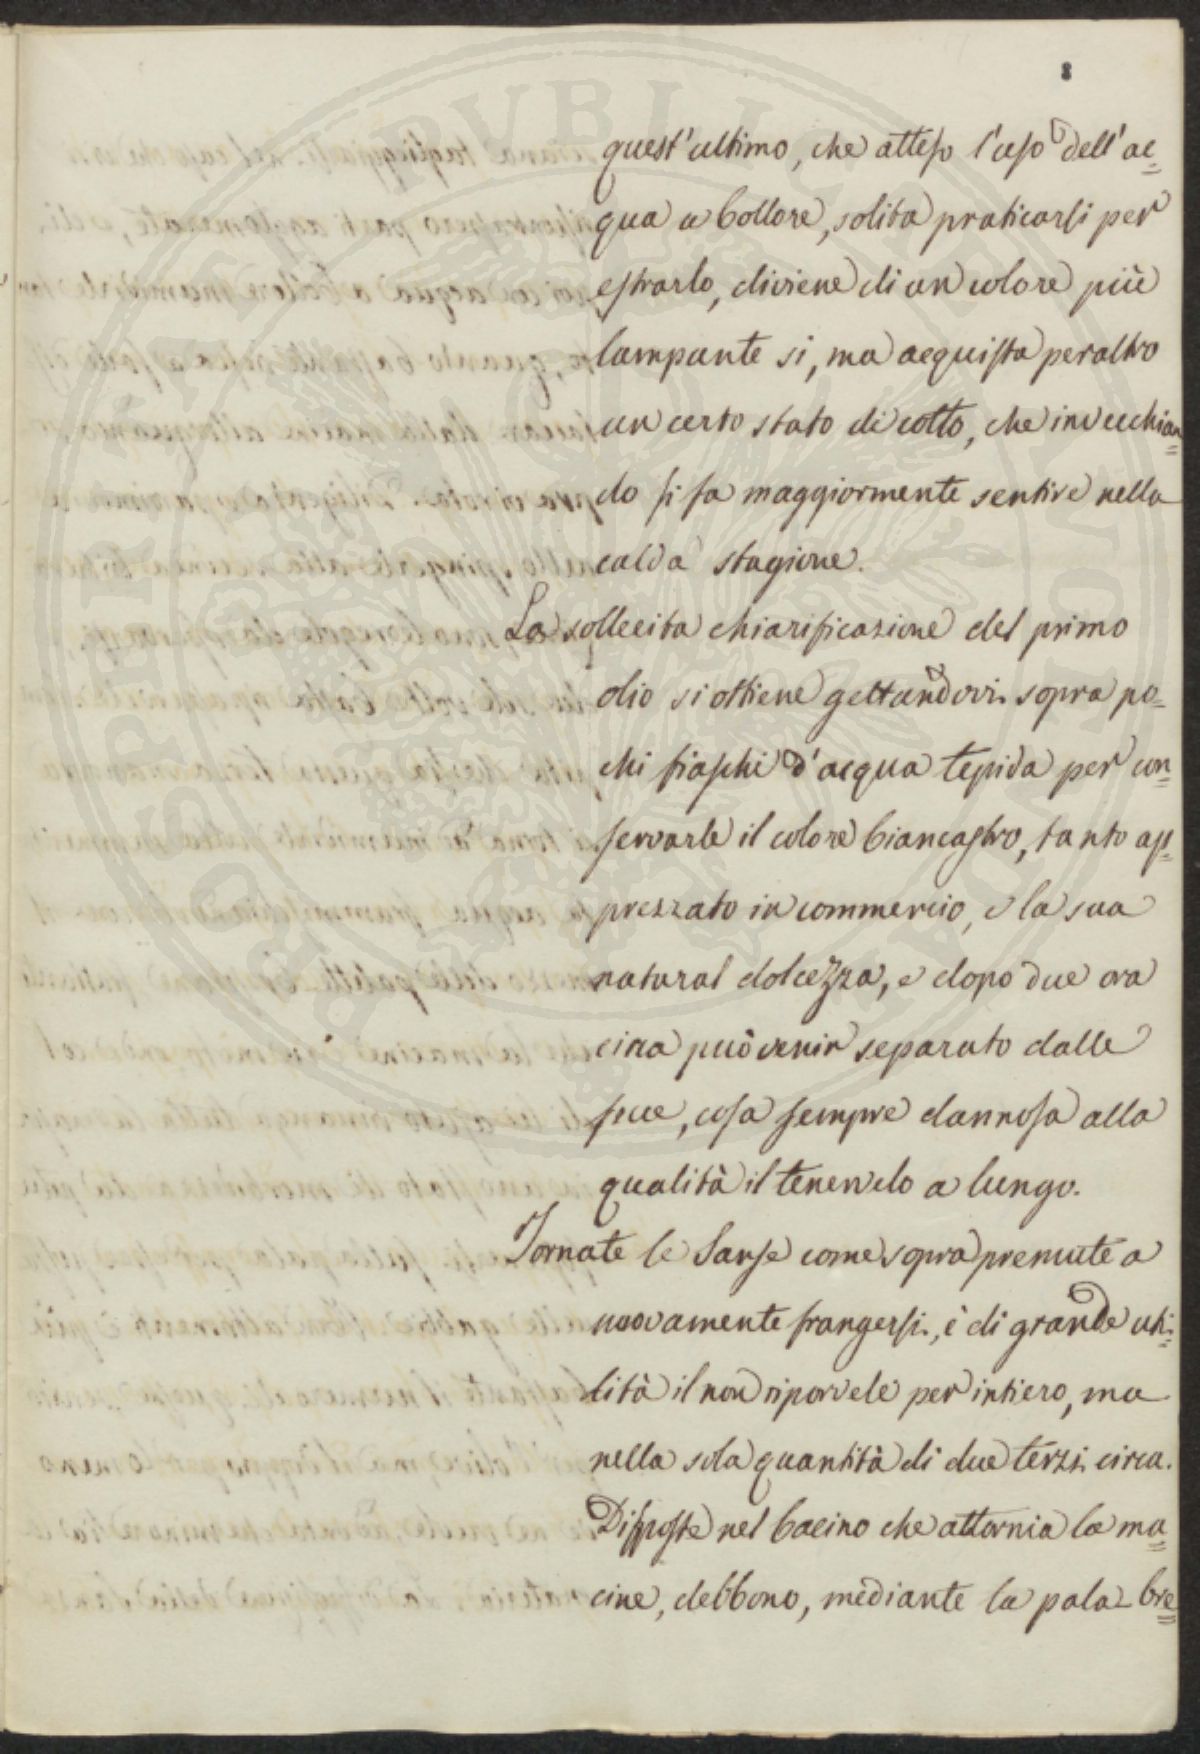 8
quest'ultimo, che atteso l'uso dell'ac=
qua a bollore, solita praticarsi per
estrarlo, diviene di un colore più
lampante si, ma acquista peraltro
un certo stato di cotto, che invecchian=
do si fa maggiormente sentire nella
calda stagione.
La sollecita chiarificazione del primo
olio si ottiene gettandovi sopra po=
chi fiaschi d'acqua tepida per con=
servarle il colore biancastro, tanto ap=
prezzato in commercio, e la sua
natural dolcezza, e dopo due ora
circa può venir separato dalle
fecce, cosa sempre dannosa alla
qualità il tenervelo a lungo.
Tornate le Sanse come sopra premute a
nuovamente frangersi, è di grande uti=
lità il non riporvele per intiero, ma
nella sola quantità di due terzi circa.
Disposte nel bacino che attornia la ma=
cine, debbono, mediante la pala bre=